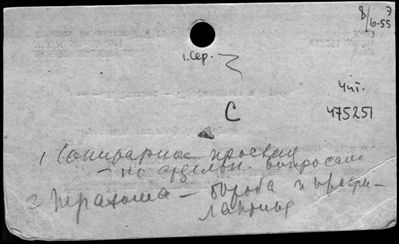 8/6-55 Э
1. Сер.
Чит.
475251
С
1 Санитарное просвещ
- по отдельн. вопросам
2 Трахома - борьба и профи-
лактика